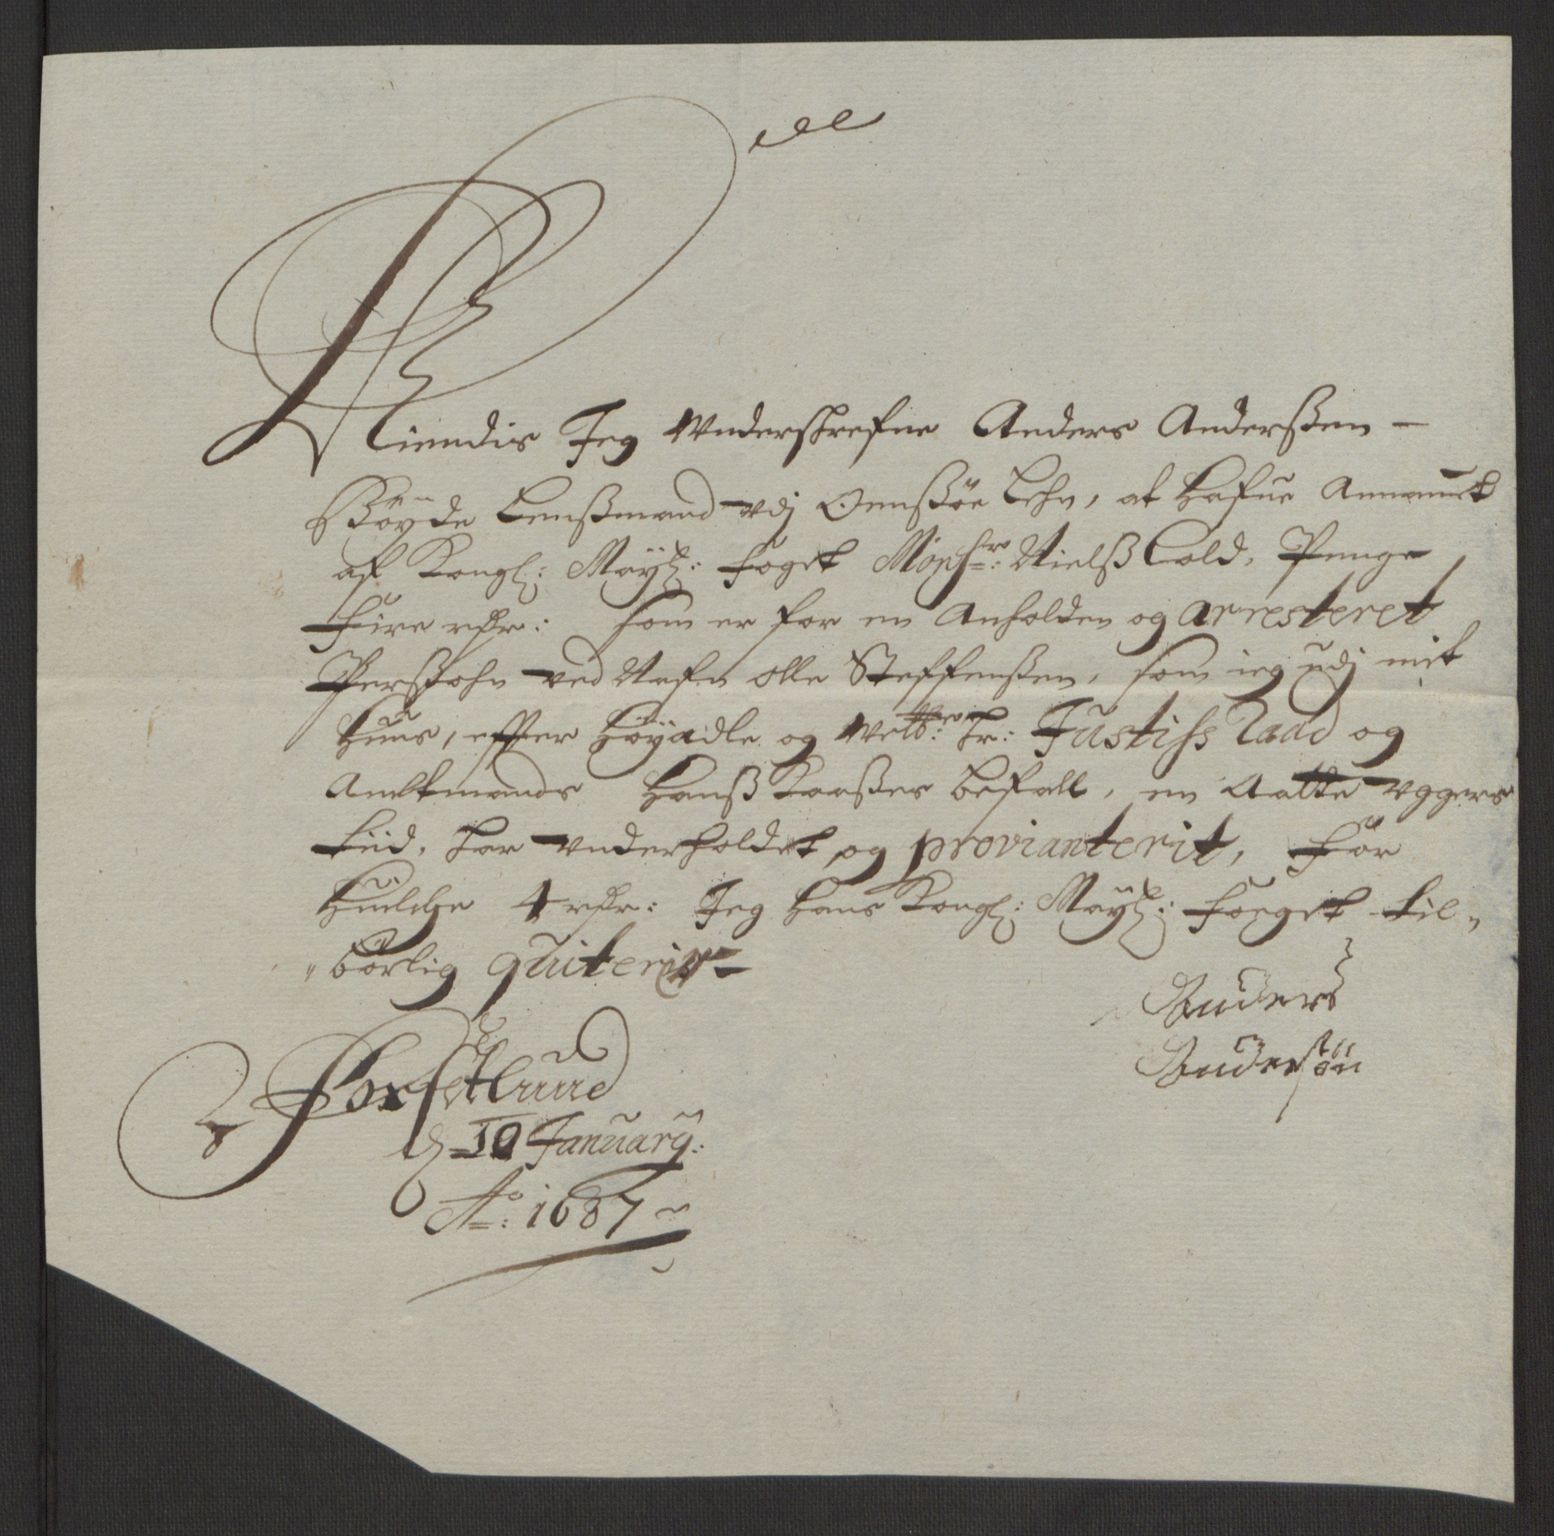 Kiendis Jeg Underschrefne Anders Anderßen –
Bøyde Lensmand udj Onnsøe Lehn, at hafue Annammet
af Kongl: Mayts: Foget Monsr: Nielß Cold, Penge
Fire rdr: som er for en Anholden og arresteret
Perssohn ved Nafn Olle Steffenßen, som ieg udj mit
Huus, effter Høyædle og Welb:ne Hr: Justiss Raad og
Amtmands Hanß Kaaßes befall, en Aatte Uggers
tiid, har underholdet og provianterit, For
Huilche 4 rdr: Jeg hans Kongl: Mayts: Foeget til„
„børlig quiterer –
Anders
Andersøn
d 10 January:
Ao: 1687